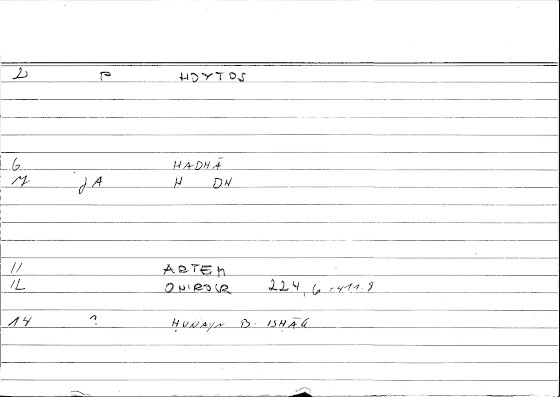 2 P HOYTOS
6 HADHĀ
M JA H DH
11 ARTEM
1L ONIROCR 224, 6 = 411.9
14 ? ḤUNAYN B. ISḤĀQ